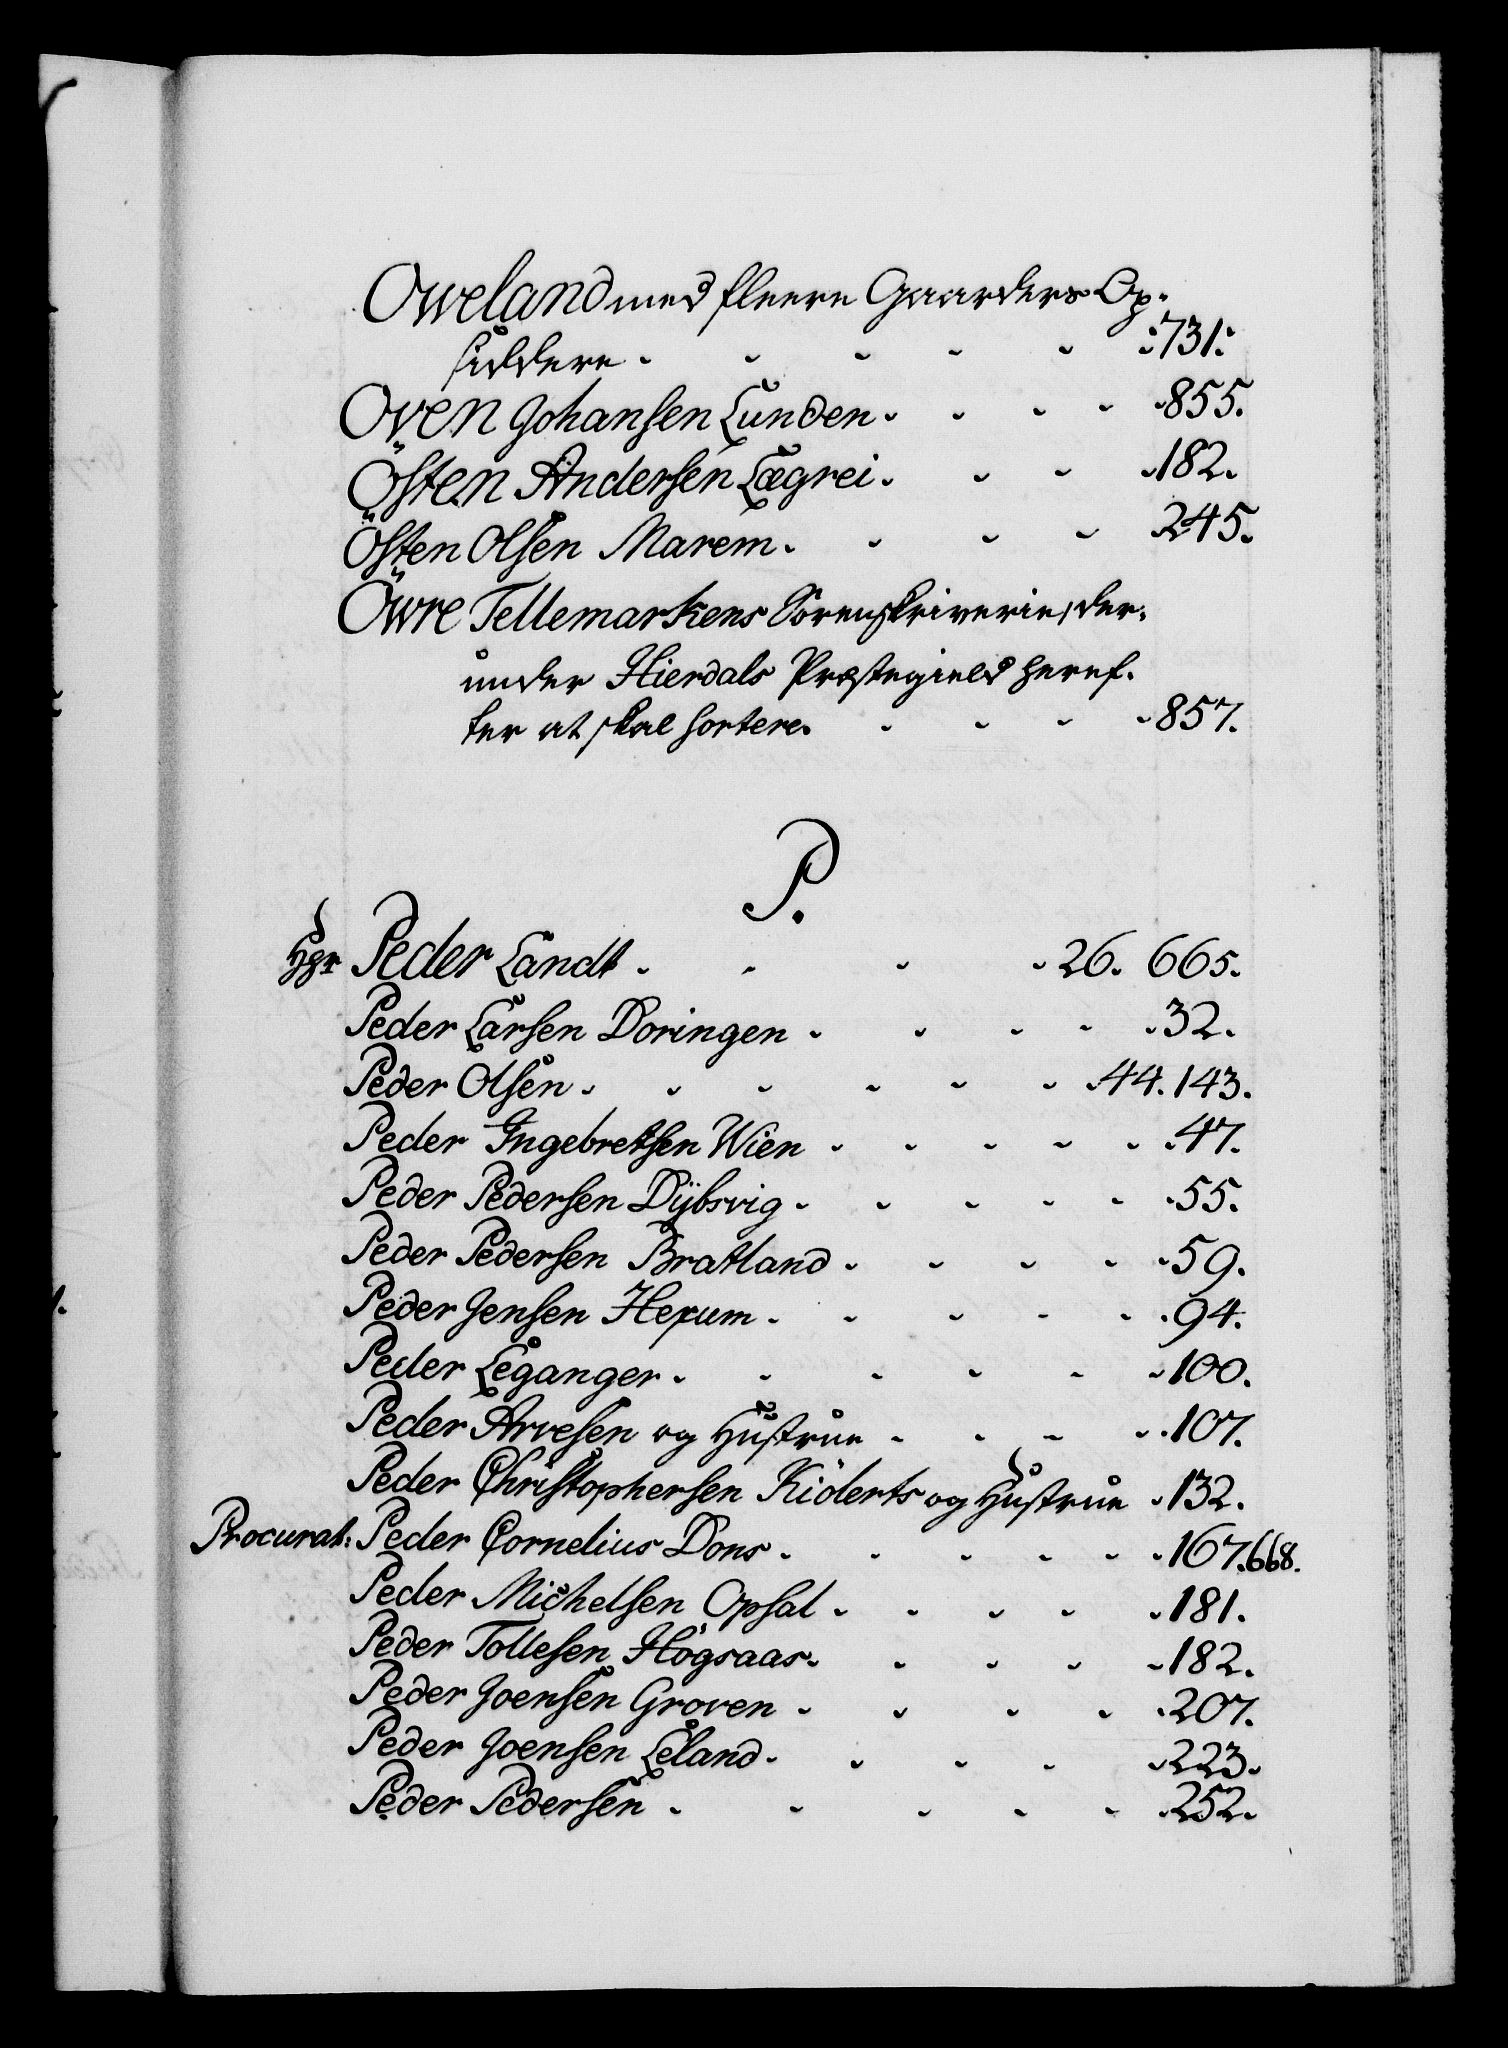 Oweland med fleere Gaarders Op-
siddere - - - - - :731:
Oven Johansen Lunden - - - - 855.
Östen Andersen Lægrei - - - 182.
Östen Olsen Marem - - - - 245.
Öwre Tellemarkens Sorenskriverie, der-
under Hierdals Præstegield heref-
ter at skal sortere - - - - 857.
P.
Hgr Peder Landt - - - - 26. 665.
Peder Larsen Doringen - - - - 32.
Peder Olsen - - - - - - 44. 143.
Peder Ingebretsen Wien - - - - - 47.
Peder Pedersen Dÿbsvig - - - - - 55.
Peder Pedersen Bratland - - - - 59.
Peder Jensen Hexum - - - - - 94.
Peder Leganger - - - - - 100.
Peder Arvesen og Hustrue - - - - 107.
Peder Christophersen Kiöderts og Hustrue - 132.
Procurat: Peder Cornelius Dons - - - - - 167. 668.
Peder Michelsen Opsal - - - - 181.
Peder Tollesen Högsaas - - - - 182.
Peder Joensen Groven - - - - 207.
Peder Joensen Leland - - - - 223.
Peder Pedersen - - - - - 252.